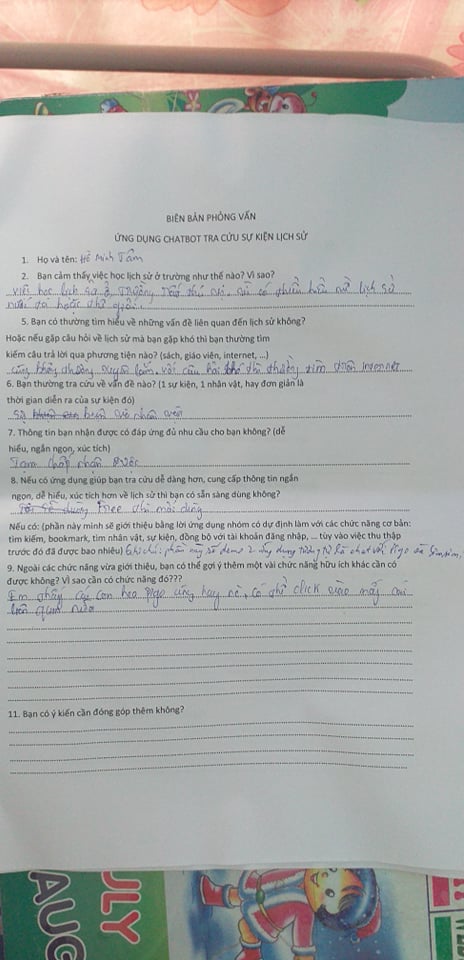 BIÊN BẢN PHỎNG VẤN
ỨNG DỤNG CHATBOT TRA CỨU SỰ KIỆN LỊCH SỬ
1. Họ và tên: Hồ Minh Tâm
2. Bạn cảm thấy việc học lịch sử ở trường như thế nào? Vì sao?
việc học lịch sử ở trường thú vị, có lịch sử
nước ta hoặc thế giới.
5. Bạn có thường tìm hiểu về những vấn đề liên quan đến lịch sử không?
Hoặc nếu gặp câu hỏi về lịch sử mà bạn gặp khó thì bạn thường tìm
kiếm câu trả lời qua phương tiện nào? (sách, giáo viên, internet, ...)
cũng không thường xuyên lắm, với câu hỏi khó thì thường tìm trên internet
6. Bạn thường tra cứu về vấn đề nào? (1 sự kiện, 1 nhân vật, hay đơn giản là
thời gian diễn ra của sự kiện đó)
sự kiện và nhân vật
7. Thông tin bạn nhận được có đáp ứng đủ nhu cầu cho bạn không? (dễ
hiểu, ngắn ngọn, xúc tích)
Tạm chấp nhận được
8. Nếu có ứng dụng giúp bạn tra cứu dễ dàng hơn, cung cấp thông tin ngắn
ngọn, dễ hiểu, xúc tích hơn về lịch sử thì bạn có sẵn sàng dùng không?
Free thì mới dùng
Nếu có: (phần này mình sẽ giới thiệu bằng lời ứng dụng nhóm có dự định làm với các chức năng cơ bản:
tìm kiếm, bookmark, tìm nhân vật, sự kiện, đồng bộ với tài khoản đăng nhập, ... tùy vào việc thu thập
trước đó đã được bao nhiêu) Ghi chú: phần này sẽ demo 2 ứng dụng tương tự là chat với Pigo và Simsimi
9. Ngoài các chức năng vừa giới thiệu, bạn có thể gợi ý thêm một vài chức năng hữu ích khác cần có
được không? Vì sao cần có chức năng đó???
Em thấy cái con heo Pigo cũng hay nè, có thể click vào mấy cái
liên quan nữa
11. Bạn có ý kiến cần đóng góp thêm không?
JULY
AUG